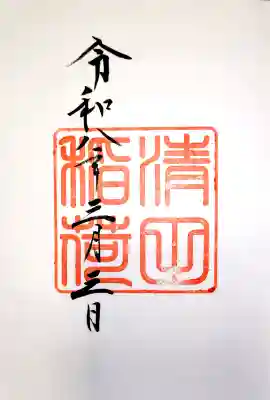 令和八年三月三日
清
稲荷